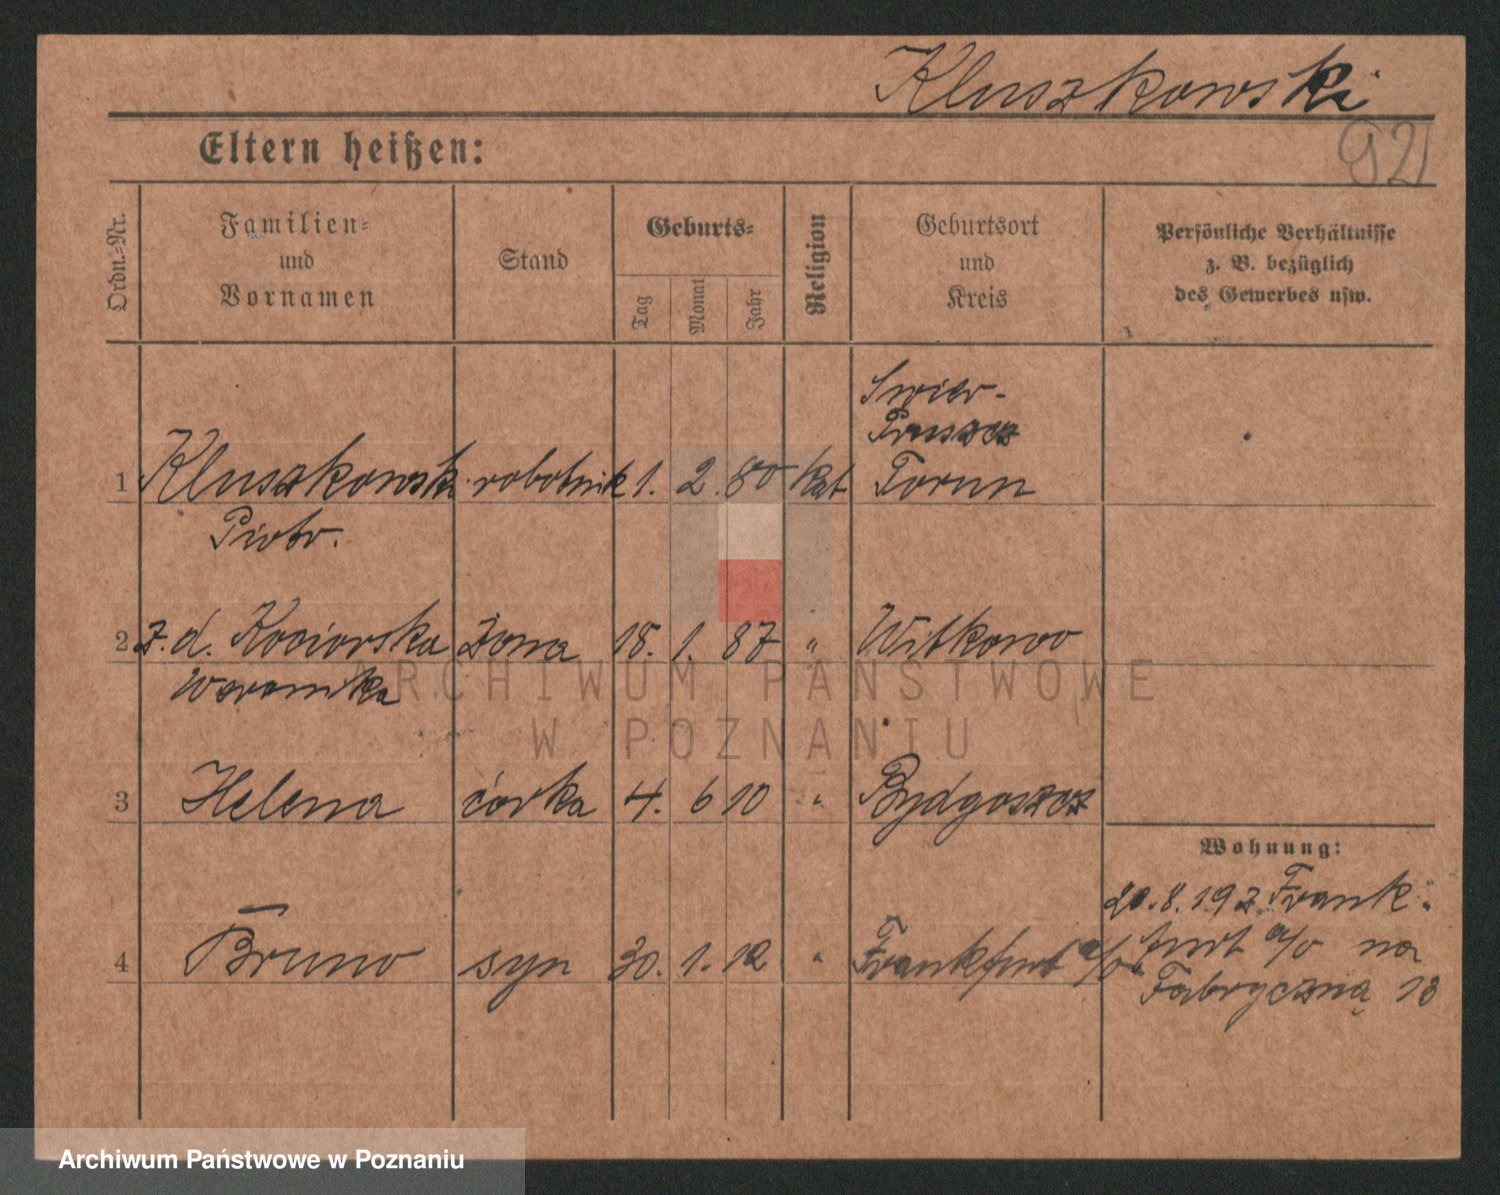 Kluszkowski
92
Eltern heißen:
Ordn.-Nr.
Familien-
und
Vornamen
Stand
Geburts-
Tag
Monat
Jahr
Religion
Geburtsort
und
Kreis
Persönliche Verhältnisse
z. B. bezüglich
des Gewerbes usw.
1 Kluszkowski robotnik 1. 2. 80 kat Toruń
Piotr.
2 z. d. Kociorska żona 18. 1. 87 " Witkowo
Weronika
3 Helena córka 4. 6 10 " Bydgoszcz
Wohnung:
4 Bruno syn 30. 1. 12 " Frankfurt a/O
Frank-
furt a/O na
Fabryczną 13
ARCHIWUM PAŃSTWOWE
W POZNANIU
Archiwum Państwowe w Poznaniu